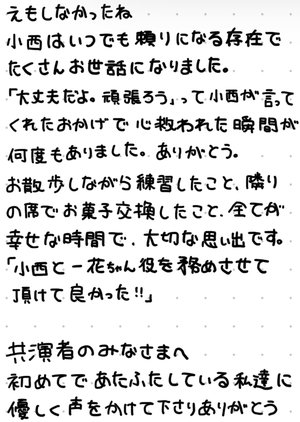 えもしなかったね
小西はいつでも頼りになる存在で
たくさんお世話になりました。
「大丈夫だよ。頑張ろう」って小西が言って
くれたおかげで心救われた瞬間が
何度もありました。ありがとう。
お散歩しながら練習したこと、隣り
の席でお菓子交換したこと、全てが
幸せな時間で、大切な思い出です。
「小西と一花ちゃん役を務めさせて
頂けて良かった!!」
共演者のみなさまへ
初めてであたふたしている私達に
優しく声をかけて下さりありがとう